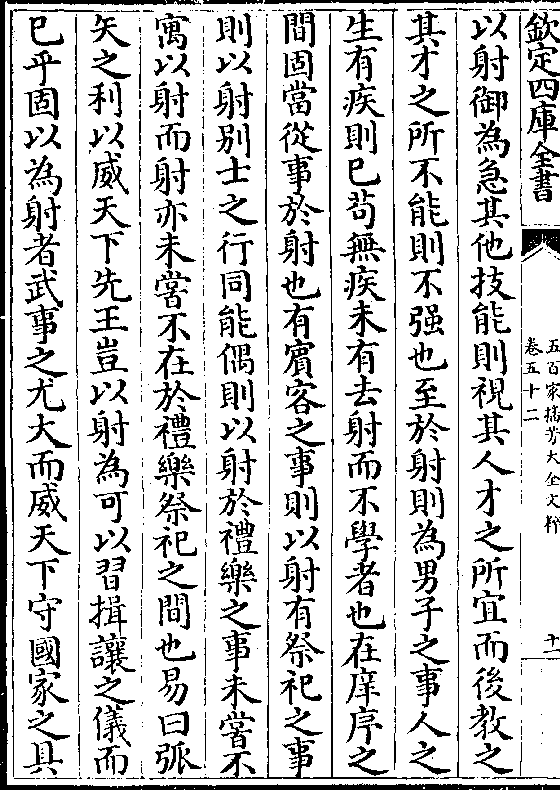 欽定四庫全書
五百家播芳大全文粹
卷五十二
十一
以射御為急其他技能則視其人才之所宜而後教之
其才之所不能則不强也至於射則為男子之事人之
生有疾則已茍無疾未有去射而不學者也在庠序之
間固當從事於射也有賔客之事則以射有祭祀之事
則以射别士之行同能偶則以射於禮樂之事未嘗不
寓以射而射亦未嘗不在於禮樂祭祀之間也易曰弧
矢之利以威天下先王豈以射為可以習揖讓之儀而
已乎固以為射者武事之尤大而威天下守國家之具